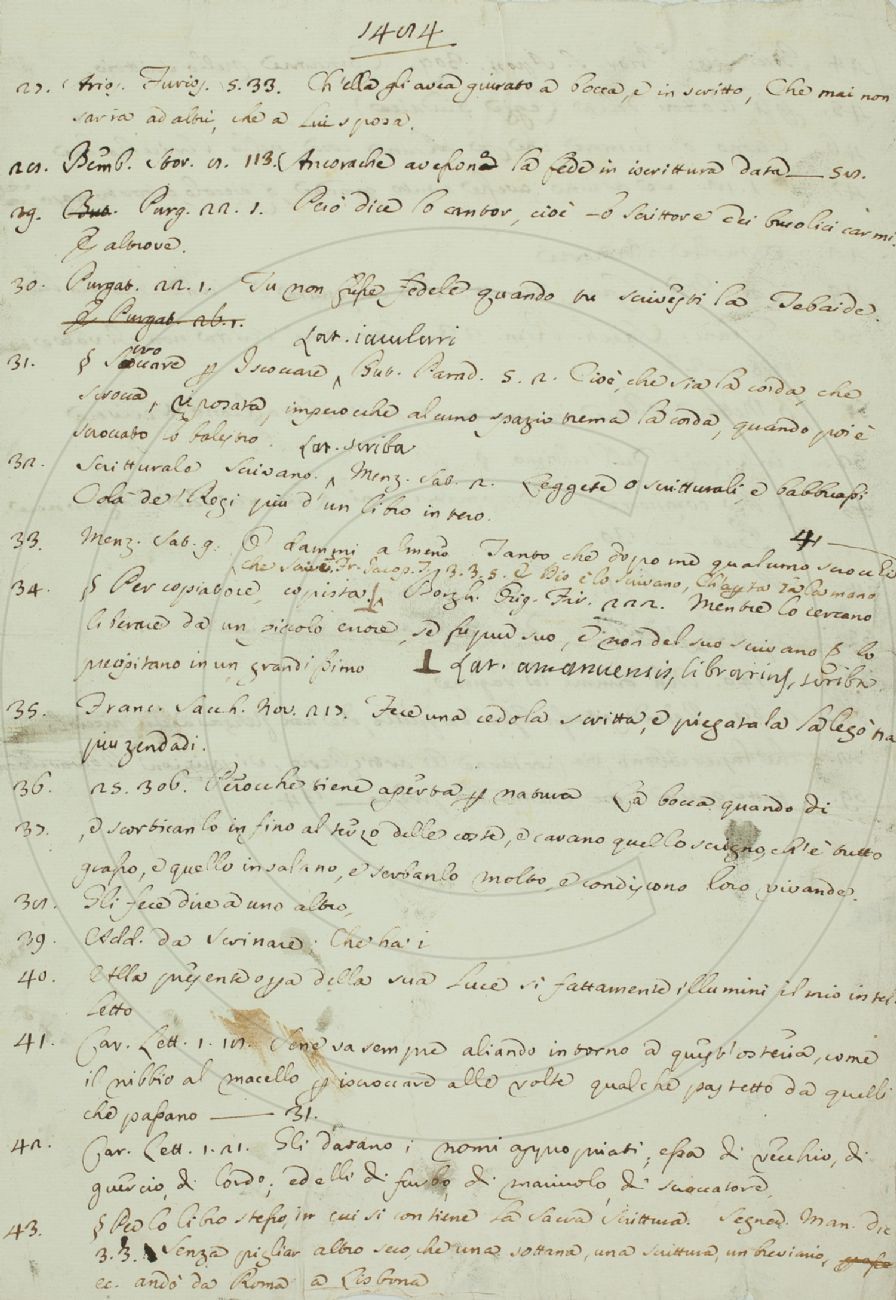 1484
27. Ario. Furios. 5. 33. Ch'ella gli avea giurato a bocca, e in scritto, Che mai non
saria ad altri, che a lui sposa.
28. Bemb. Stor. 8. 113. Ancorachè avessono la fede in iscrittura data — 58.
29. But. Purg. 22. 1. Però dice lo cantor, cioè lo scrittore dei bucolici carmi.
E altrove.
30. Purgat. 22. 1. Tu non fussi fedele quando tu scivesti la Tebaide.
E Purgat. 26. 1.
Lat. iaculari
31. § Scoccare p Iscoccare, But. Parad. 5. 2. Cioè, che sia la corda, che
scrocca, riposata, imperocchè alcuno spazio trema la corda, quando poi è
scroccato lo balestro. Lat. scriba
32. Scritturale Scrivano. Menz. Sat. 2. Leggete o scritturali, e babbuassi
Colà de' Regi più d'un libro intero.
33. Menz. Sat. 9. O dammi almeno Tanto che dopo me qualcuno scrocchi
che scrive. Fr. Iacop. T. 3. 3. 5. E Dio è lo scrivano, Ch'aperta la mano
34. § Per copiatore, copista. Borgh. Orig. Fir. 222. Mentre lo cercano
liberare da un piccolo errore, se fu pur suo, e non del suo scrivano § lo
precipitano in un grandissimo Lat. amanuensis, librarius, scriba.
35. Franc. Sacch. Nov. 217. Fece una cedola scritta, e piegatala la legò in
più zendadi.
36. 25. 306. Perocchè tiene aperta p natura La bocca quando di
37. , e scorticanlo infino al terzo delle coste, e cavano quello scrigno, ch'è tutto
grasso, e quello insalano, e serbanlo molto, e condiscono loro vivande.
38. Gli fece dire a uno altro,
39. Add. da Scrinare; Che ha i
40. Alla presente opa della sua luce si fattamente illumini il mio intel-
letto
41. Car. Lett. 1. 18. Sene va sempre aliando intorno a quest'osteria, come
il nibbio al macello p iscroccare alle volte qualche pastetto da quelli
che passano — 31.
42. Car. Lett. 1. 21. Gli davano i nomi appropriati; essa di vecchio, di
guercio, di lordo; ed elli di furbo, di mariuolo, di scroccatore,
43. § Per lo libro stesso, in cui si contiene la Sacra Scrittura. Segner. Man. Dic.
3. 3. Senza pigliar altro seco, che una sottana, una scrittura, un breviario,
ec. andò da Roma a Lisbona